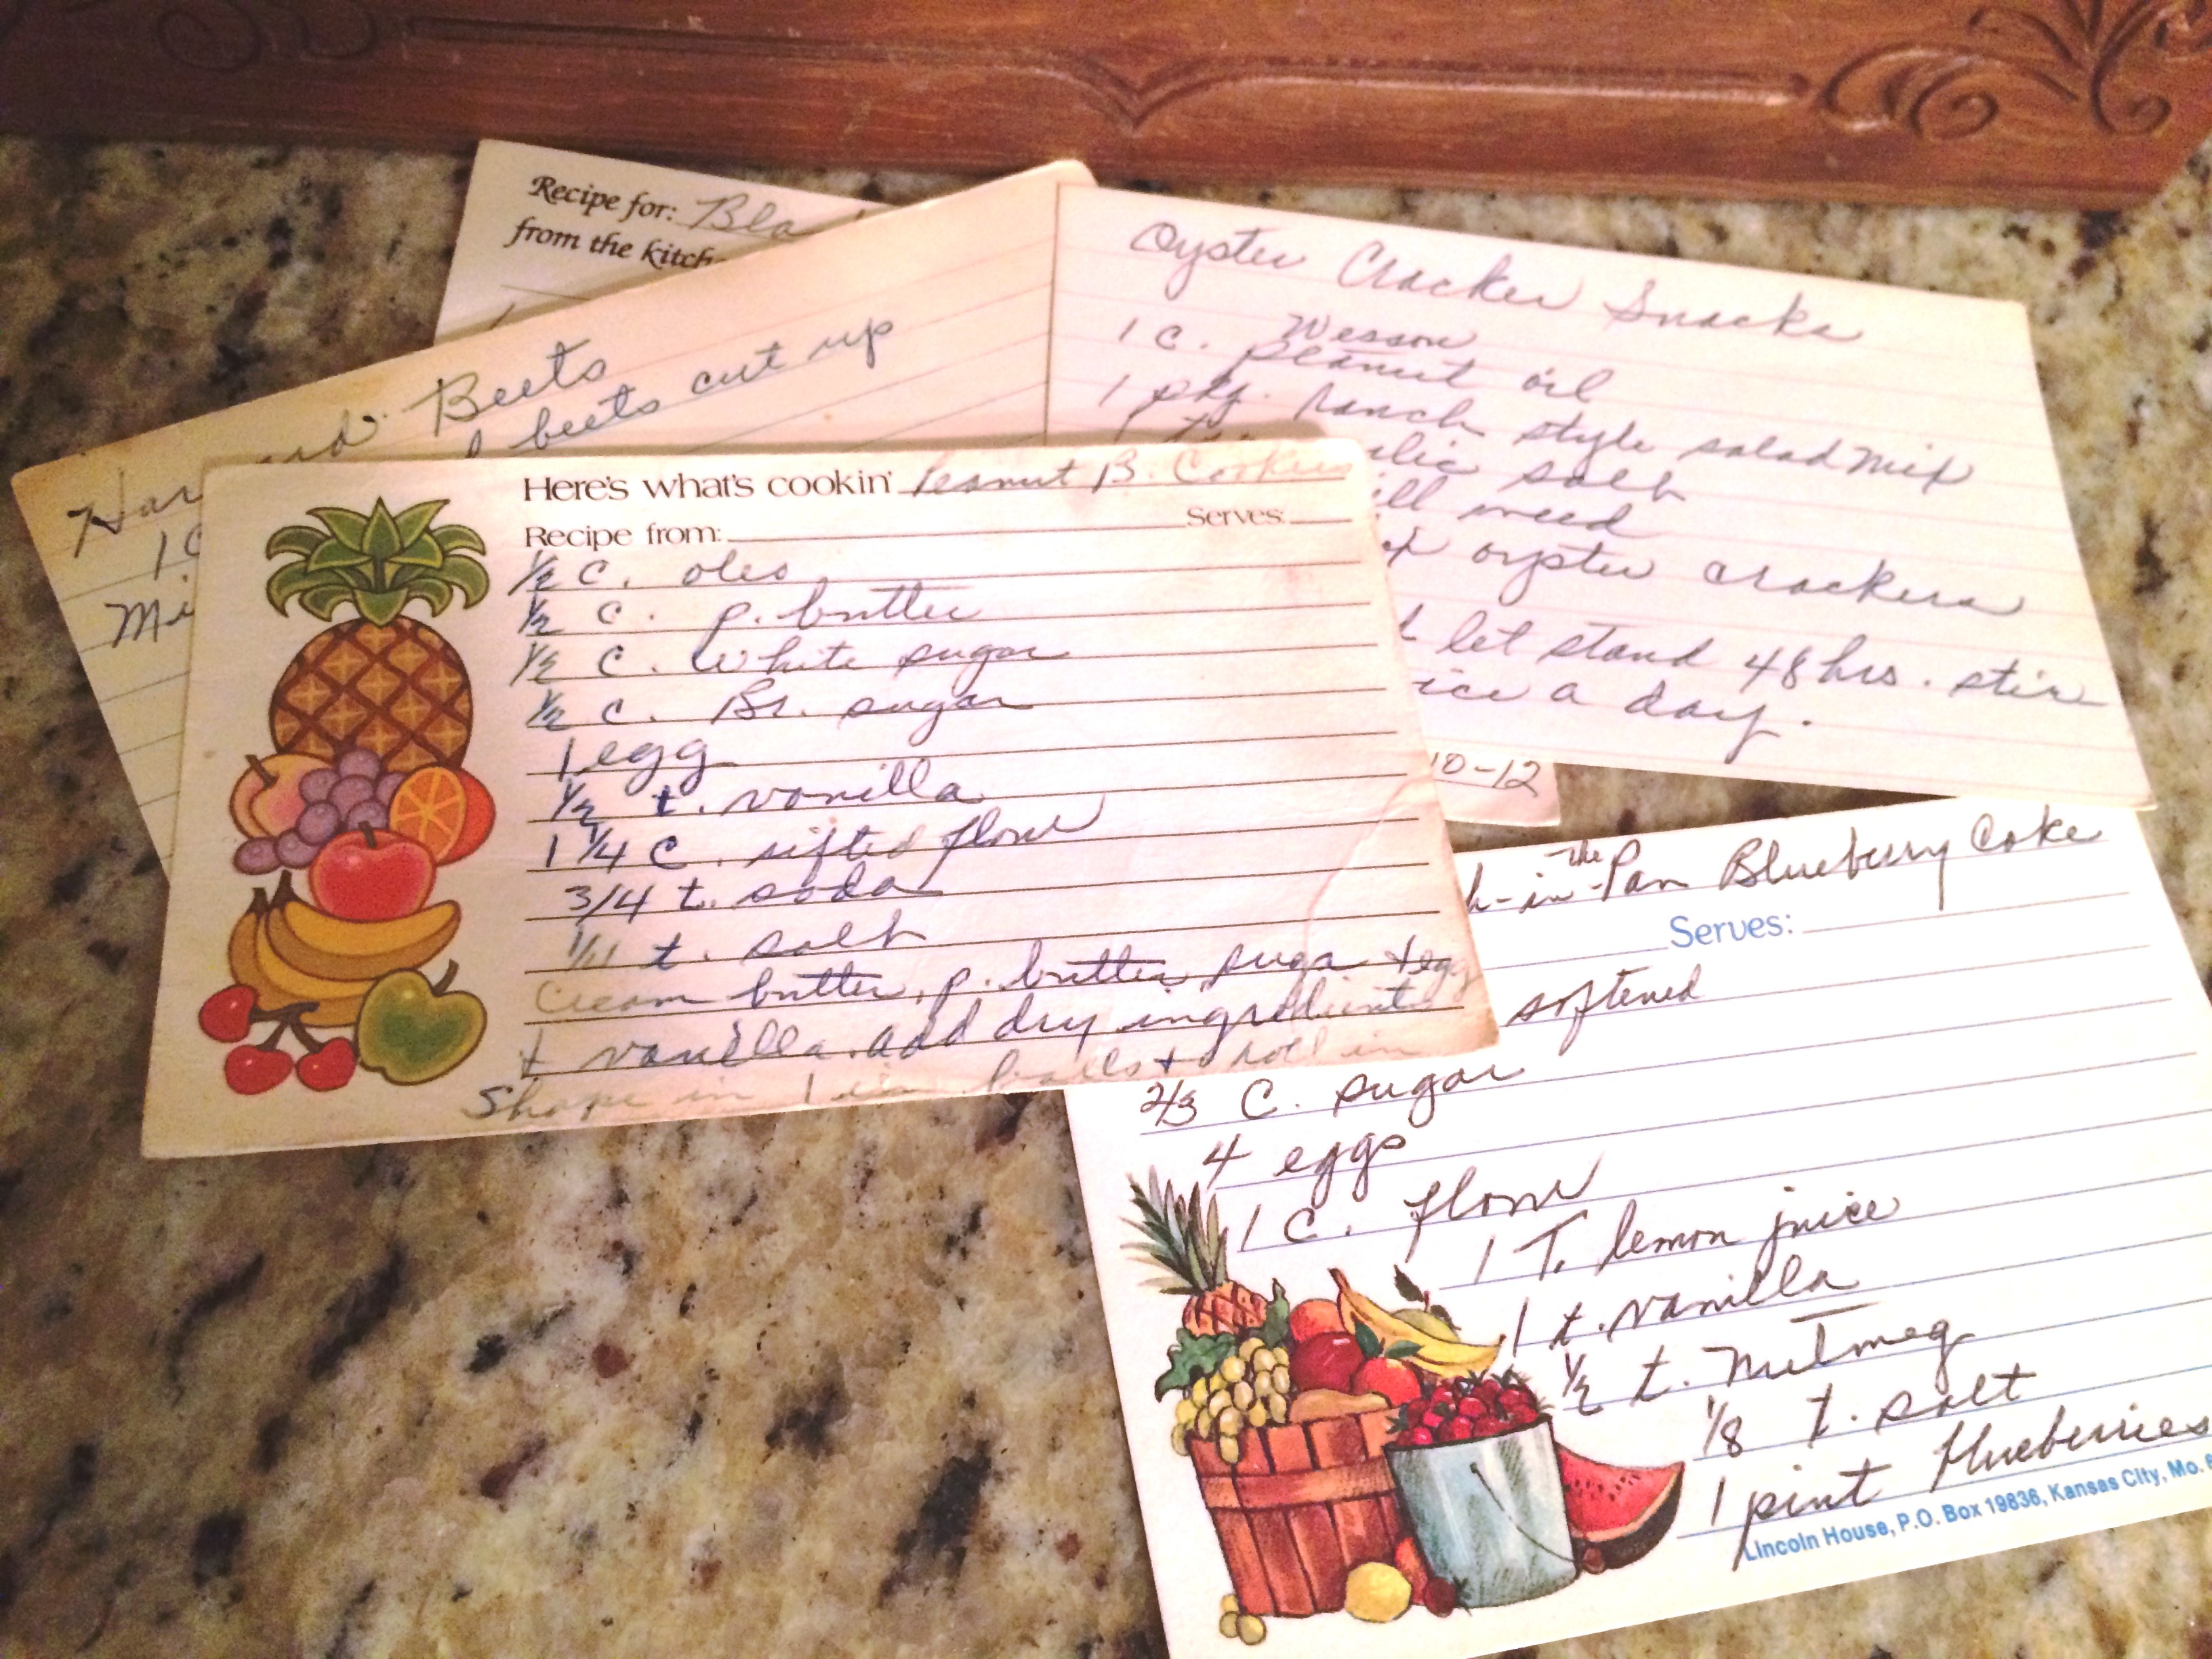 Recipe for: Bla
from the kitch
Beets
beets cut up
Har
1 C
Mi
Oyster Cracker Snacks
Wesson
1 c. peanut oil
1 pkg. ranch style salad mix
salt
weed
oyster crackers
let stand 48 hrs. stir
a day.
10-12
Here's what's cookin' Peanut B. Cookies
Recipe from: Serves:
1/2 C. oleo
1/2 C. p. butter
1/2 C. White sugar
1/2 C. Br. sugar
1 egg
1/2 t. vanilla
1 1/4 C. sifted flour
3/4 t. soda
t. salt
Cream butter, p. butter, suga + egg
+ vanilla. add dry ingredients
Shape in 1 in. balls + roll in
h-in-the-Pan Blueberry Cake
Serves:
softened
2/3 C. sugar
4 eggs
1 C. flour
1 T. lemon juice
1 t. vanilla
1/2 t. Nutmeg
1/8 t. salt
1 pint blueberries
Lincoln House, P.O. Box 19836, Kansas City, Mo. 6